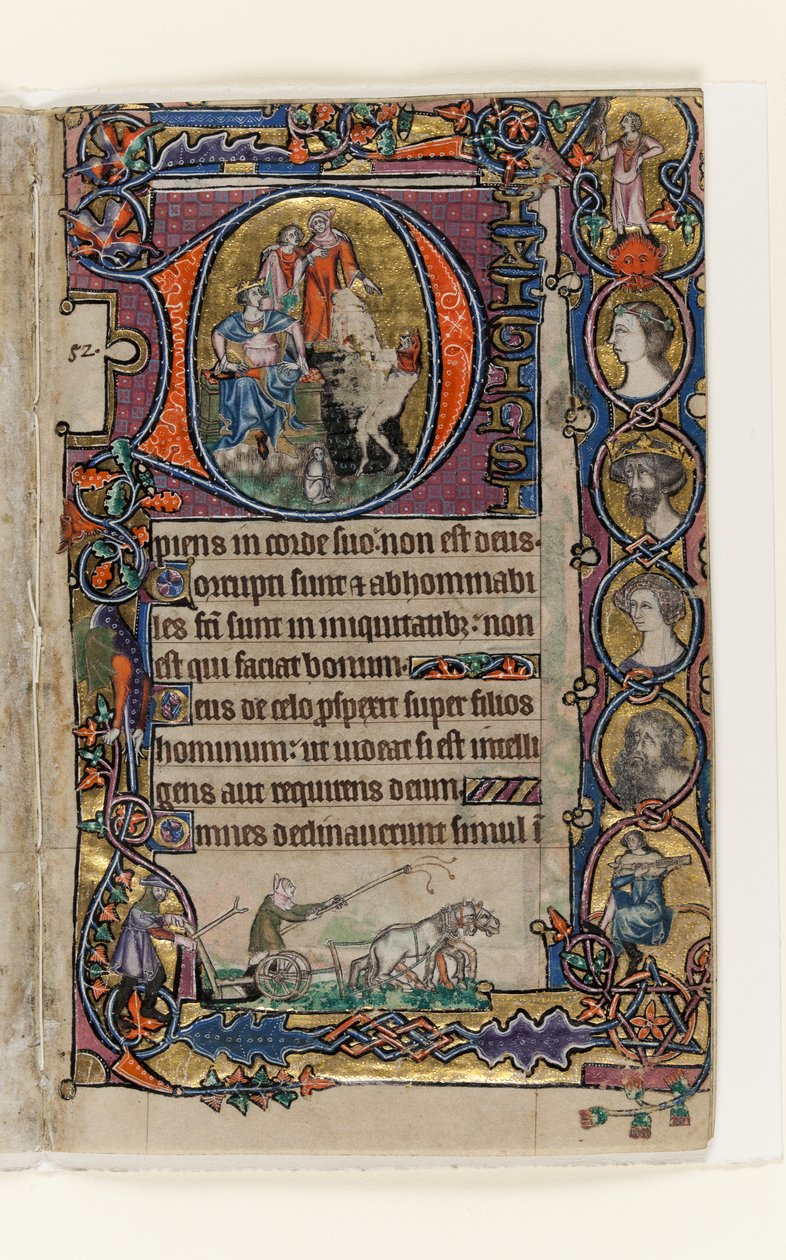 52.
D
IXIT INSI
piens in corde suo: non est deus.
Corrupti sunt ⁊ abhominabi
les fc̄i sunt in iniquitatibꝫ: non
est qui faciat bonum.
Deus de celo ꝓspexit super filios
hominum: ut uideat si est intelli
gens aut requirens deum.
Omnes declinauerunt simul ī